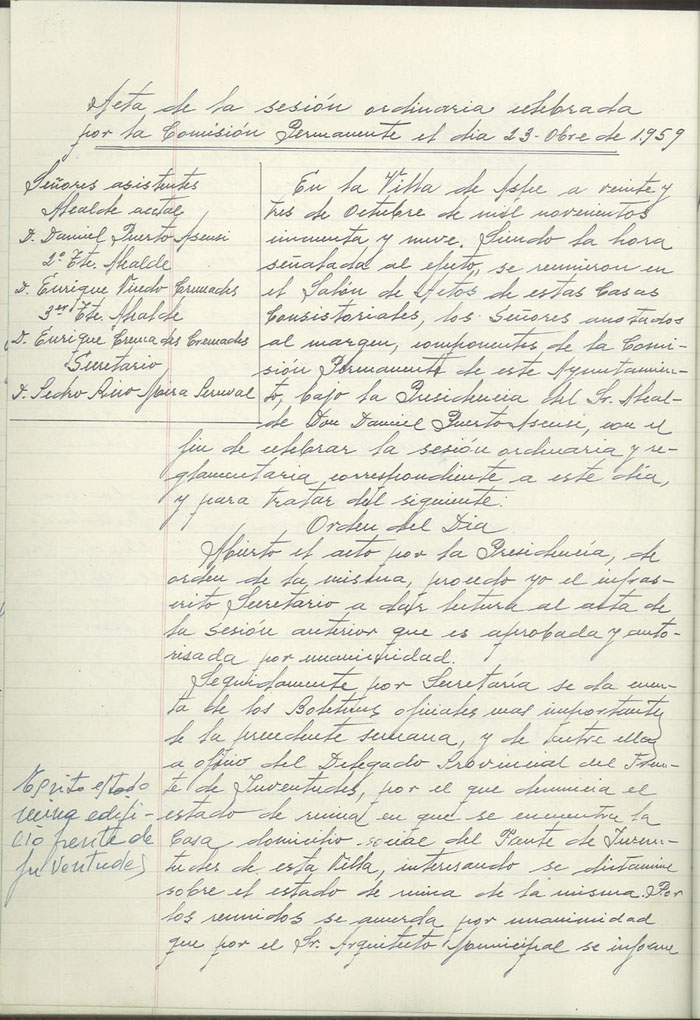 Acta de la sesión ordinaria celebrada
por la Comisión Permanente el dia 23-Obre de 1.959
Señores asistentes
Alcalde acctal
D. Daniel Puerto Asensi
2º Tte. Alcalde
D. Enrique Cremades
3er Tte. Alcalde
D. Enrique Cremades Cremades
Secretario
D. Pedro Mira
En la Villa de Aspe a veinte y
tres de Octubre de mil novecientos
cincuenta y nueve. Siendo la hora
señalada al efecto, se reunieron en
el Salón de Actos de estas Casas
Consistoriales, los Señores anotados
al margen, componentes de la Comi-
sión Permanente de este Ayuntamien-
to, bajo la Presidencia del Sr. Alcal-
de Don Daniel Puerto Asensi, con el
fin de celebrar la sesión ordinaria y re-
glamentaria, correspondiente a este día,
y para tratar del siguiente:
Orden del Dia
Abierto el acto por la Presidencia, de
orden de la misma, procedo yo el infras-
crito Secretario a dar lectura al acta de
la sesión anterior que es aprobada y auto-
risada por unanimidad.
Seguidamente por Secretaría se da cuen-
ta de los Boletines oficiales mas importantes
de la precedente semana, y de entre ellas
a oficio del Delegado Provincial del Fren-
te de Juventudes, por el que denuncia el
estado de ruina en que se encuentra la
Casa domicilio social del Frente de Juven-
tudes de esta Villa, interesando se dictamine
sobre el estado de ruina de la misma. Por
los reunidos se acuerda por unanimidad
que por el Sr. Arquitecto Municipal se informe
estado
ruina edifi-
cio frente de
Juventudes